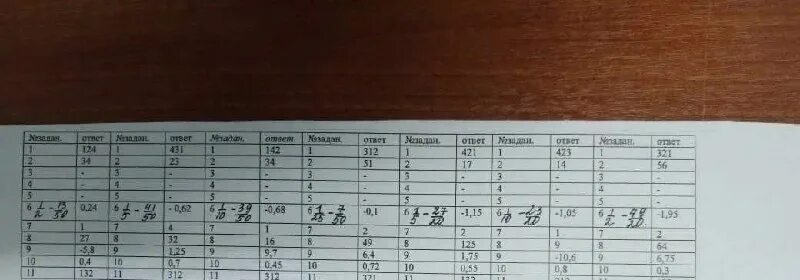 №задан. ответ №задан. ответ №задан. ответ №задан. ответ №задан. ответ №задан. ответ №задан. ответ
1 124 1 431 1 142 1 312 1 421 1 423 1 321
2 34 2 23 2 34 2 51 2 17 2 14 2 56
3 - 3 - 3 - 3 - 3 - 3 - 3 -
4 - 4 - 4 - 4 - 4 - 4 - 4 -
5 - 5 - 5 - 5 - 5 - 5 - 5 -
6 1/2 - 13/50 0,24 6 1/5 - 41/50 -0,62 6 1/10 - 39/50 -0,68 6 1/25 - 7/50 -0,1 6 1/5 - 27/20 -1,15 6 1/10 - 23/20 -1,05 6 1/2 - 49/20 -1,95
7 1 7 4 7 1 7 2 7 2 7 1 7 2
8 27 8 32 8 16 8 49 8 125 8 9 8 64
9 -5,8 9 1,25 9 9,7 9 6,4 9 1,75 9 -10,6 9 6,75
10 0,4 10 0,7 10 0,45 10 0,72 10 0,55 10 0,8 10 0,3
11 132 11 312 11 321 11 11 312 11 11 312